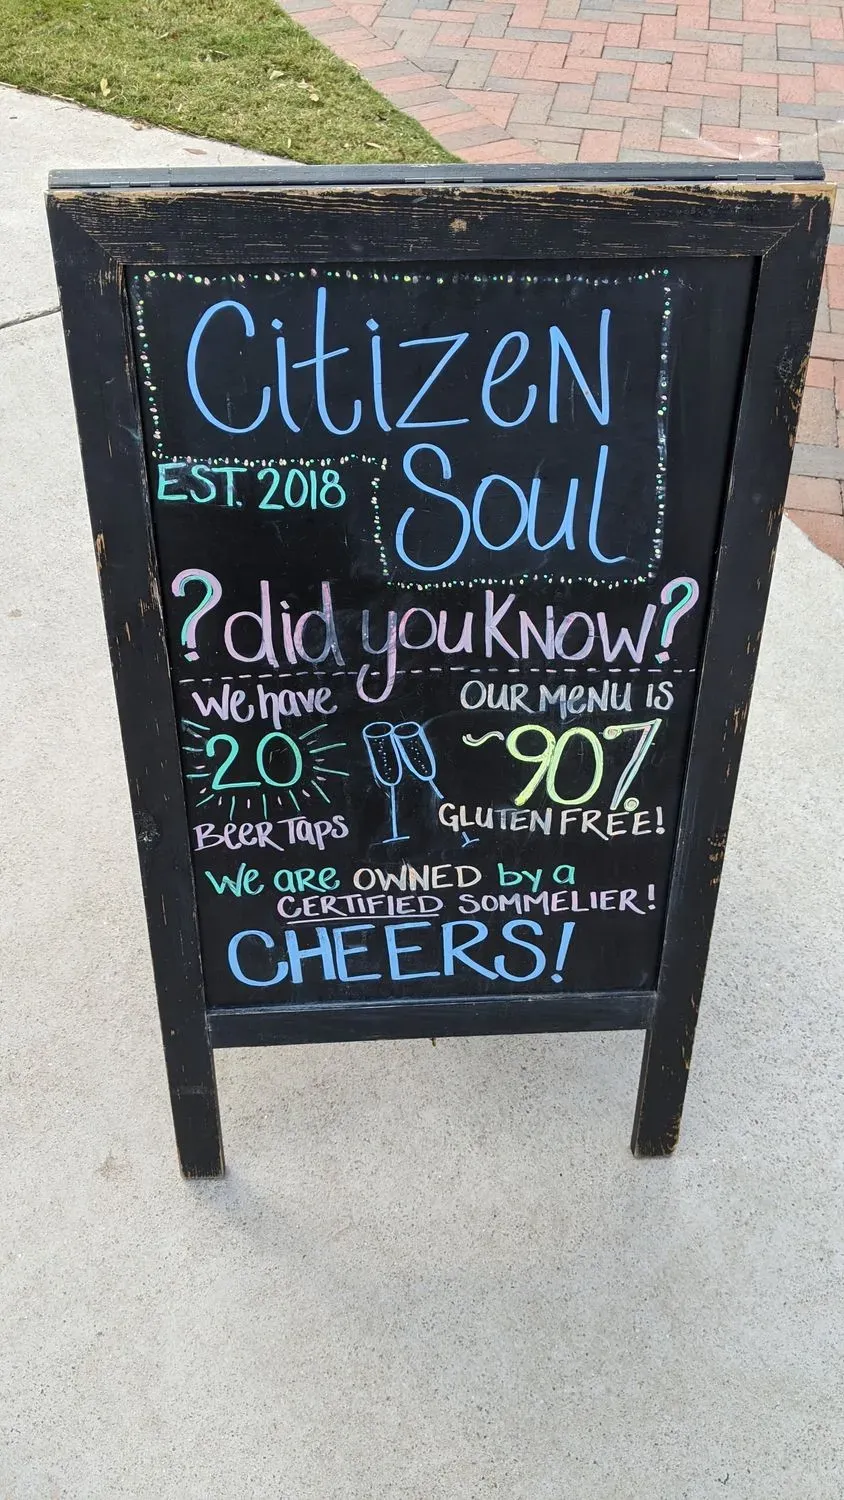 Citizen
Soul
EST. 2018
? did you KNOW?
We have
20
BEER TAPS
OUR MENU IS
~90%
GLUTEN FREE!
We are OWNED by a
CERTIFIED SOMMELIER!
CHEERS!